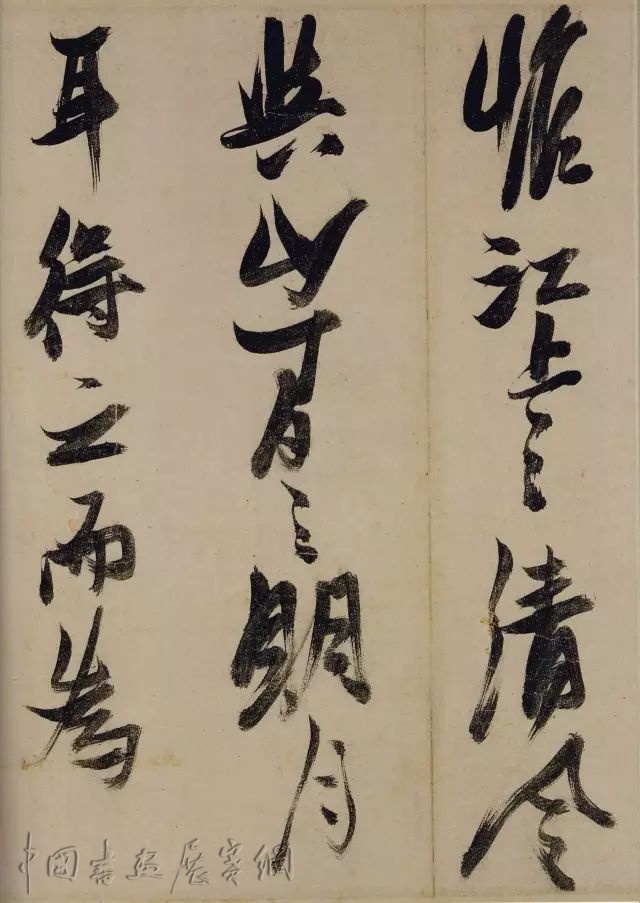 惟江上之清風
與山間之明月
耳得之而為
中國書画展賽網